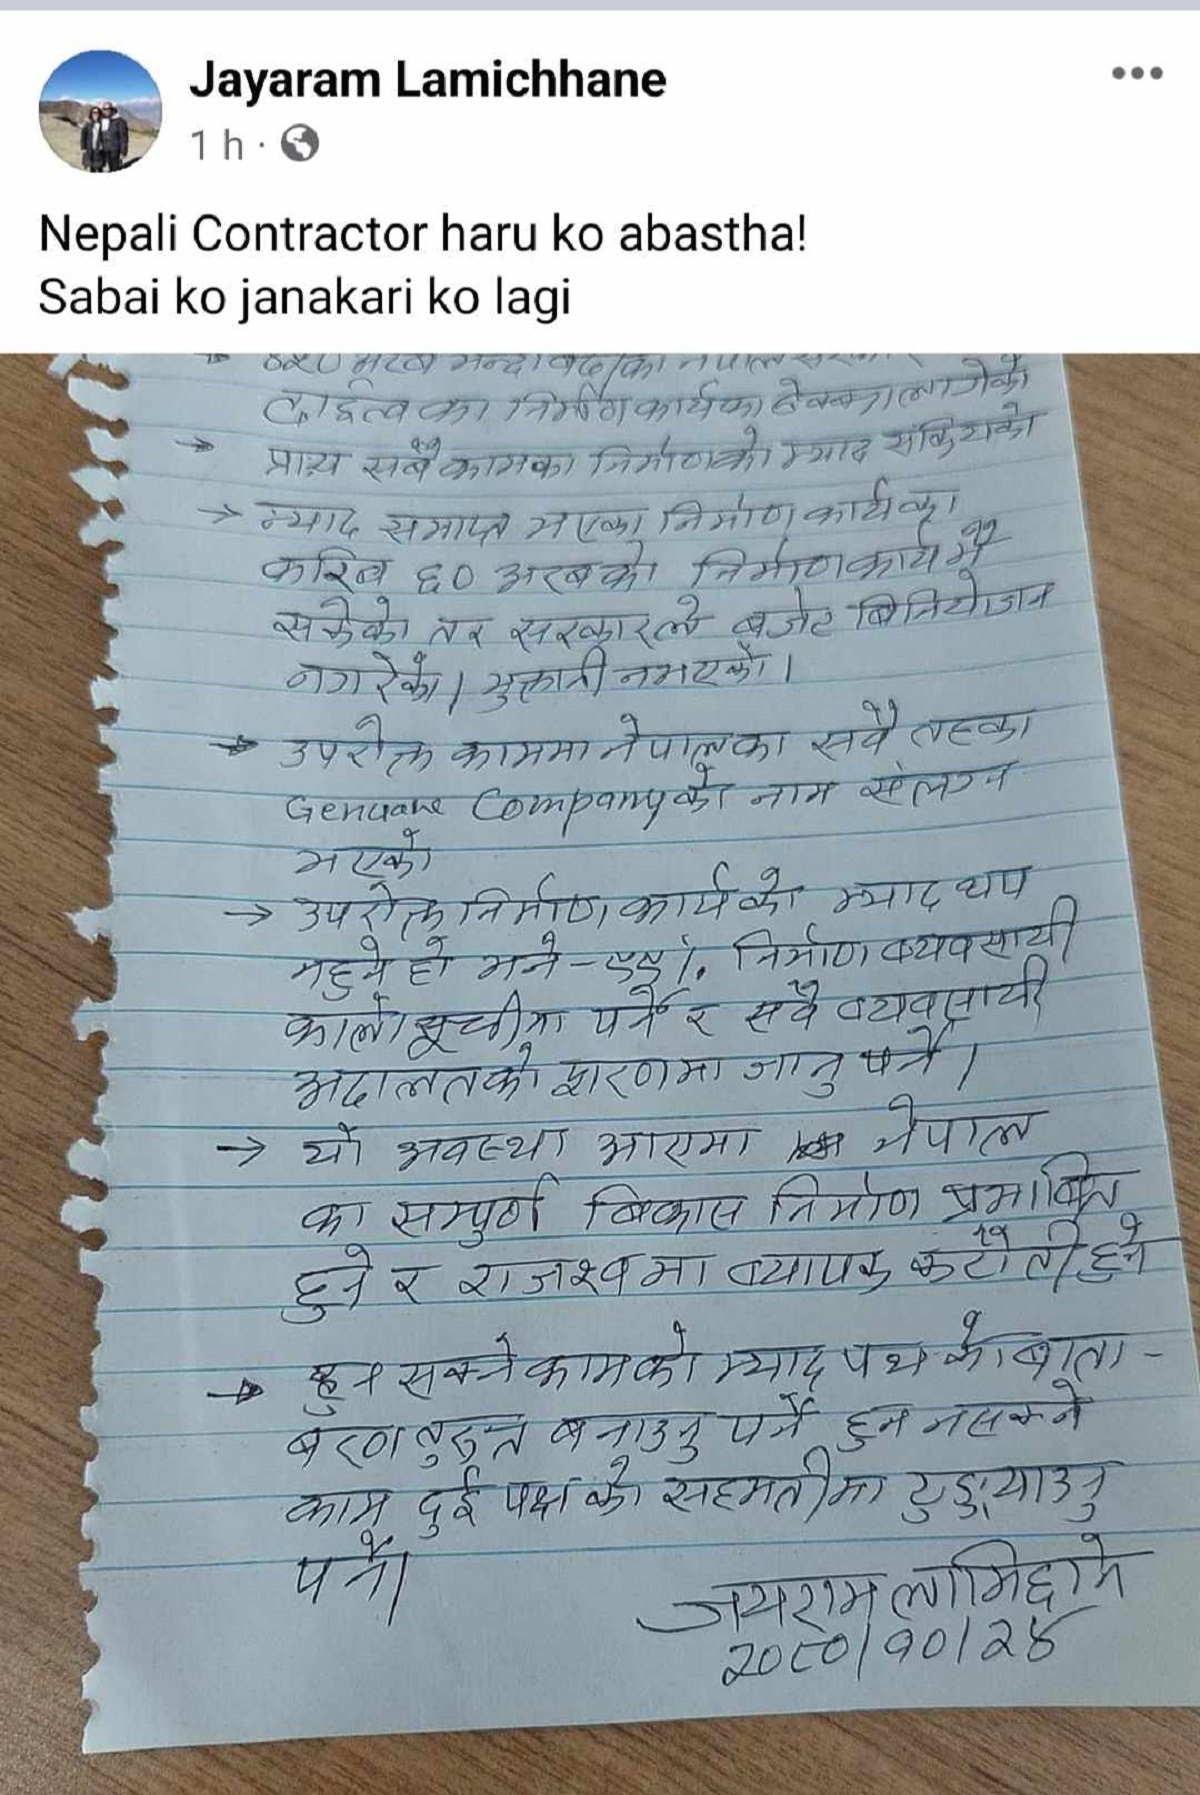 Jayaram Lamichhane
1 h ·
Nepali Contractor haru ko abastha!
Sabai ko janakari ko lagi
दाईत्व का निर्माण कार्यका ठेक्का लागेको
→ प्राय सबै कामका निर्माणको म्याद सकियको
→ म्याद समाप्त भएका निर्माण कार्यका
करिब ६० अरबको निर्माण कार्य भै
सकेको तर सरकारले बजेट बिनियोजन
नगरेको। भुक्तानी नभएको।
→ उपरोक्त काममा नेपालका सबै तहका
Company को नाम संलग्न
भएको
→ उपरोक्त निर्माण कार्यको म्याद थप
नहुने हो भने - ९९%. निर्माण व्यवसायी
कालो सूचीमा पर्ने र सबै व्यवसायी
अदालतको शरणमा जानु पर्ने।
→ यो अवस्था आएमा नेपाल
का सम्पुर्ण बिकास निर्माण प्रभावित
हुने र राजश्वमा व्यापक कटौती हुने
→ हुन सक्ने कामको म्याद पथ को बाता-
बरण तुरुन्त बनाउनु पर्ने हुन नसक्ने
काम दुई पक्षको सहमतीमा टुङ्ग्याउनु
पर्ने।
जयराम लामिछाने
२०८०/१०/२४